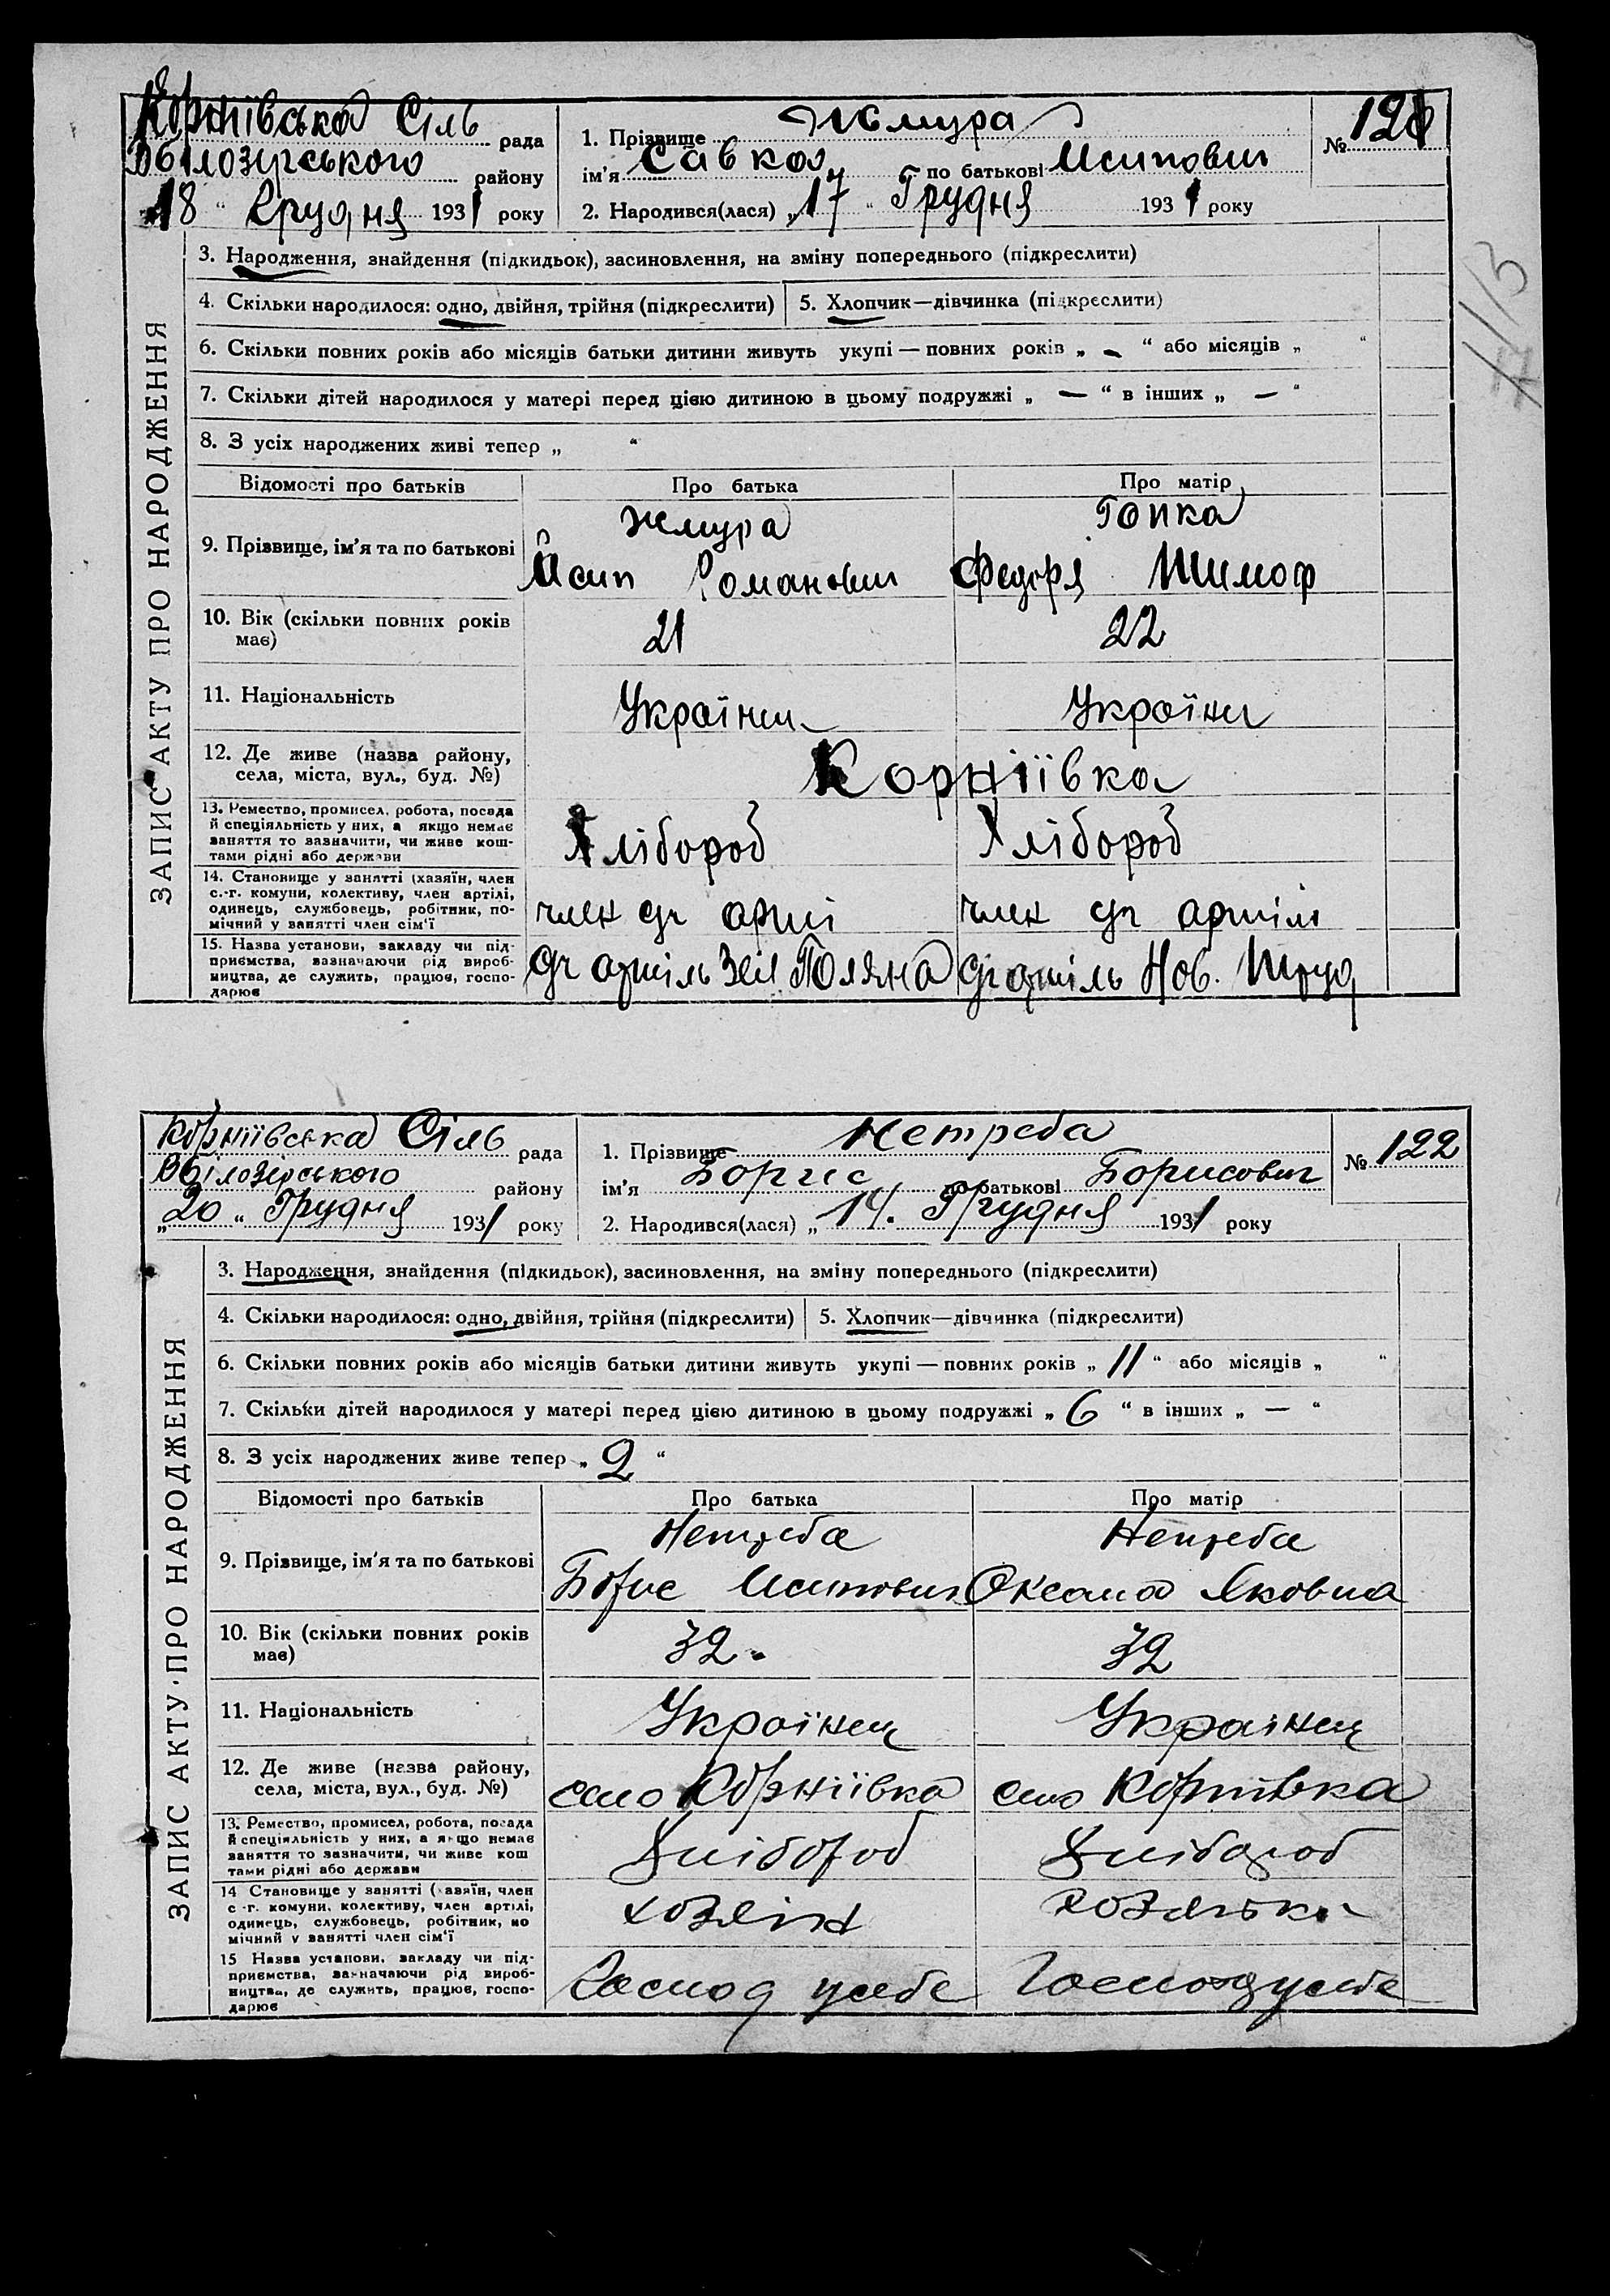 Корніівська Сіль рада
Білозірського району
18 " Грудня 1931 року
1. Прізвище Жмура
ім'я Савка по батькові Исипович
2. Народився(лася) „17 " Грудня 1931 року
№ 121
ЗАПИС АКТУ ПРО НАРОДЖЕННЯ
3. Народження, знайдення (підкидьок), засиновлення, на зміну попереднього (підкреслити)
4. Скільки народилося: одно, двійня, трійня (підкреслити) 5. Хлопчик—дівчинка (підкреслити)
6. Скільки повних років або місяців батьки дитини живуть укупі — повних років „ - " або місяців „ "
7. Скільки дітей народилося у матері перед цією дитиною в цьому подружжі „ — " в інших „ — "
8. З усіх народжених живі тепер „ "
Відомості про батьків Про батька Про матір
9. Прізвище, ім'я та по батькові
Жмура
Йсип Романович
Гопка
Федоря Тимоф
10. Вік (скільки повних років має) 21 22
11. Національність Українец Украінец
12. Де живе (назва району, села, міста, вул., буд. №) Корніівка
13. Ремество, промисел, робота, посада
й спеціяльність у них, а якщо немає
заняття то зазначити, чи живе кош-
тами рідні або держави
Хлібороб Хлібороб
14. Становище у занятті (хазяїн, член
с.-г. комуни, колективу, член артілі,
одинець, службовець, робітник, по-
мічний у занятті член сім'ї
член сг арті член сг артілі
15. Назва установи, закладу чи під-
приємства, зазначаючи рід вироб-
ництва, де служить, працює, госпо-
дарює
сг артіль Зел Поляна сг артіль Нов. Труд
413
Корніівська Сіль рада
Білозірського району
„20 " Грудня 1931 року
1. Прізвище Нетреба
ім'я Борис по батькові Борисович
2. Народився(лася) „14. Грудня 1931 року
№ 122
ЗАПИС АКТУ ПРО НАРОДЖЕННЯ
3. Народження, знайдення (підкидьок), засиновлення, на зміну попереднього (підкреслити)
4. Скільки народилося: одно, двійня, трійня (підкреслити) 5. Хлопчик—дівчинка (підкреслити)
6. Скільки повних років або місяців батьки дитини живуть укупі — повних років „ 11 " або місяців „ "
7. Скільки дітей народилося у матері перед цією дитиною в цьому подружжі „ 6 " в інших „ — "
8. З усіх народжених живе тепер „ 2 "
Відомості про батьків Про батька Про матір
9. Прізвище, ім'я та по батькові
Нетреба
Борис Исипович
Нетреба
Оксана Яковна
10. Вік (скільки повних років має) 32. 32
11. Національність Українец Украінец
12. Де живе (назва району, села, міста, вул., буд. №) село Корніївка село Корнівка
13. Ремество, промисел, робота, посада
й спеціяльність у них, а якщо немає
заняття то зазначити, чи живе кош
тами рідні або держави
Хлібороб Хлібороб
14 Становище у занятті (хазяїн, член
с-г. комуни, колективу, член артілі,
одинець, службовець, робітник, по
мічний у занятті член сім'ї
хозяін хозяйка
15 Назва установи, закладу чи під-
приємства, зазначаючи рід вироб-
ництва, де служить, працює, госпо-
дарює
Господ у себе Господ у себе